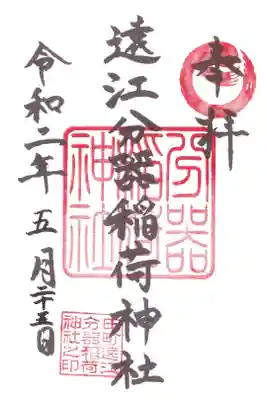 奉拝
遠江分器稲荷神社
令和二年 五月二十五日
分器稲荷神社
田町遠江
分器稲荷
神社之印